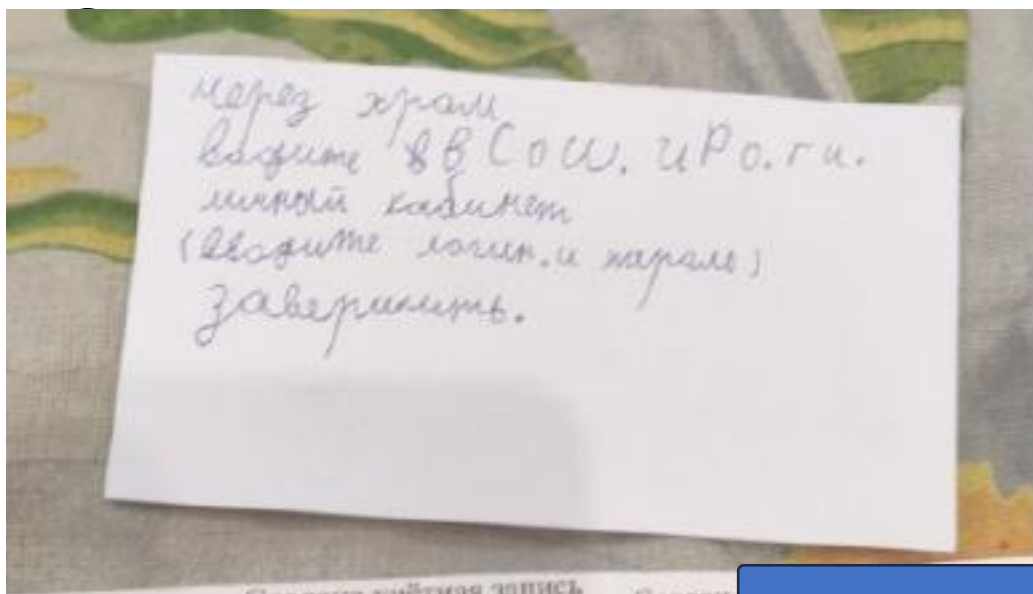 через храм
водите в в СоШ. иРо.ги.
личный кабинет
(вводите логин. и парале)
завершить.
учётная запись